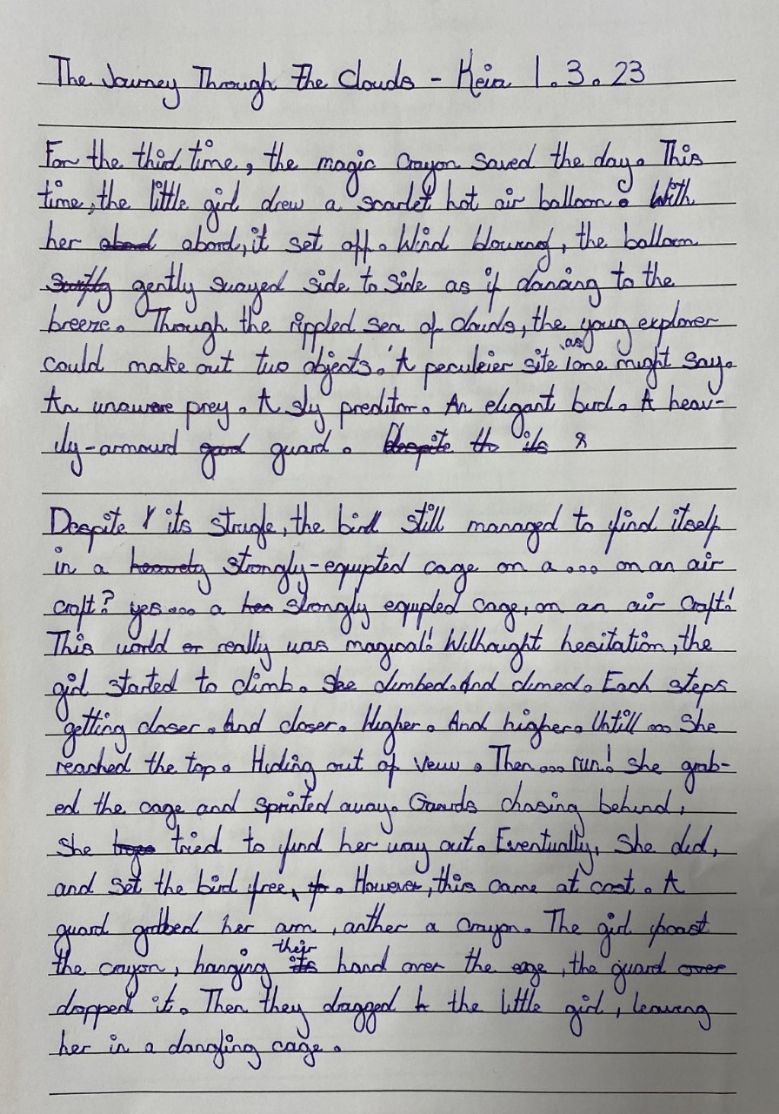 The Journey Through The Clouds - Kein 1.3.23
For the third time, the magic Crayon saved the day. This
time, the little girl drew a scarlet hot air balloon. With
her abord, it set off. Wind blowing, the balloon
gently swayed side to side as if dancing to the
breeze. Through the rippled sea of clouds, the young explorer
could make out two objects. A peculeier site as one might say.
An unaware prey. A sly preditor. An eligant bird. A heav-
ily-armourd guard.
Despite its strugle, the bird still managed to find itself
in a strongly-equipted cage on a... on an air
craft? yes... a strongly equipted cage, on an air craft!
This world really was magical! Withought hesitation, the
girl started to climb. She climbed. And climed. Each steps
getting closer. And closer. Higher. And higher. Untill... She
reached the top. Hiding out of veiw. Then... run! She grab-
ed the cage and sprinted away. Gaurds chasing behind,
she tried to find her way out. Eventually, she did,
and set the bird free. However, this came at cost. A
guard grabbed her arm, anther a crayon. The girl
the crayon, hanging their hand over the ege, the guard
dropped it. Then they dragged the little girl, leaving
her in a dangling cage.